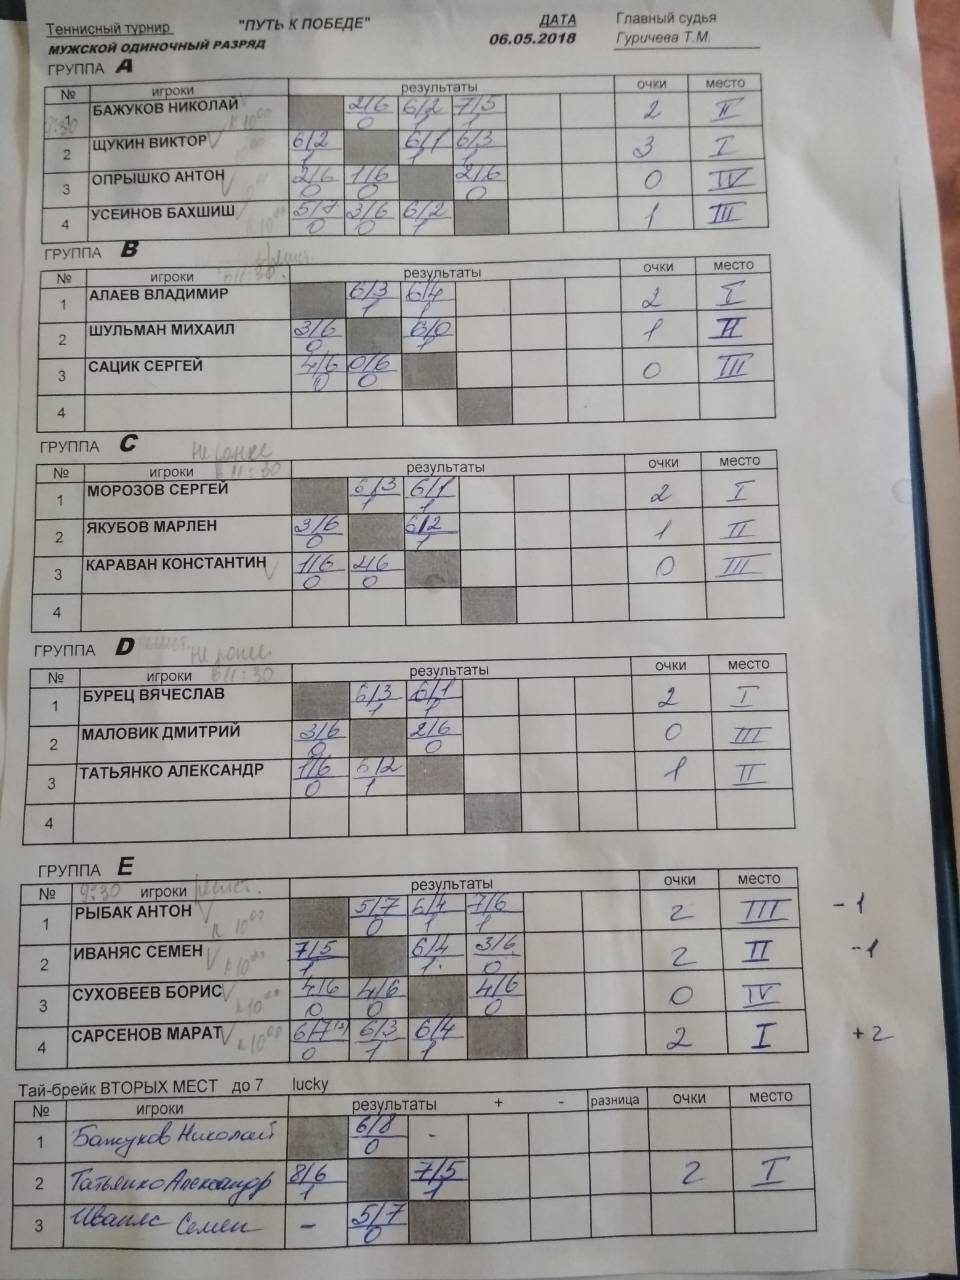 Теннисный турнир "ПУТЬ К ПОБЕДЕ" ДАТА Главный судья
МУЖСКОЙ ОДИНОЧНЫЙ РАЗРЯД 06.05.2018 Гуричева Т.М.
ГРУППА A
№ игроки результаты очки место
1 БАЖУКОВ НИКОЛАЙ 2/6 0 6/2 1 7/5 1 2 II
2 ЩУКИН ВИКТОР 6/2 1 6/1 1 6/3 1 3 I
3 ОПРЫШКО АНТОН 2/6 0 1/6 0 2/6 0 0 IV
4 УСЕИНОВ БАХШИШ 5/7 0 3/6 0 6/2 1 1 III
ГРУППА B
№ игроки результаты очки место
1 АЛАЕВ ВЛАДИМИР 6/3 1 6/4 1 2 I
2 ШУЛЬМАН МИХАИЛ 3/6 0 6/0 1 1 II
3 САЦИК СЕРГЕЙ 4/6 0 0/6 0 0 III
4
ГРУППА C Не ранее
№ игроки в 11:30 результаты очки место
1 МОРОЗОВ СЕРГЕЙ 6/3 1 6/1 1 2 I
2 ЯКУБОВ МАРЛЕН 3/6 0 6/2 1 1 II
3 КАРАВАН КОНСТАНТИН 1/6 0 2/6 0 0 III
4
ГРУППА D Не ранее
№ игроки в 11:30 результаты очки место
1 БУРЕЦ ВЯЧЕСЛАВ 6/3 1 6/1 1 2 I
2 МАЛОВИК ДМИТРИЙ 3/6 0 2/6 0 0 III
3 ТАТЬЯНКО АЛЕКСАНДР 1/6 0 6/2 1 1 II
4
ГРУППА E
№ 9:30 игроки результаты очки место
1 РЫБАК АНТОН к 10⁰⁰ 5/7 0 6/4 1 7/6 1 2 III -1
2 ИВАНЯС СЕМЕН к 10⁰⁰ 7/5 1 6/4 1 3/6 0 2 II -1
3 СУХОВЕЕВ БОРИС к 10⁰⁰ 4/6 0 4/6 0 4/6 0 0 IV
4 САРСЕНОВ МАРАТ к 10⁰⁰ 6/7 0 6/3 1 6/4 1 2 I +2
Тай-брейк ВТОРЫХ МЕСТ до 7 lucky
№ игроки результаты + - разница очки место
1 Бажуков Николай 6/8 0 -
2 Татьянко Александр 8/6 1 7/5 1 2 I
3 Иваняс Семен - 5/7 0